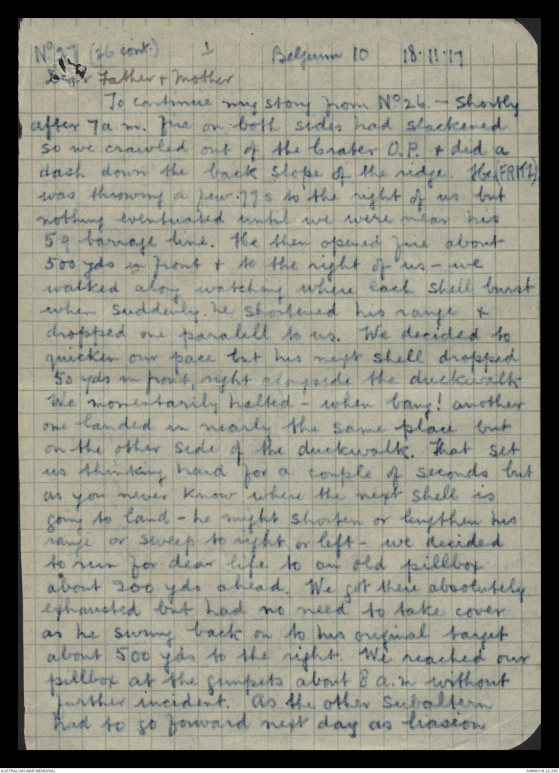 No 27 (26 cont.) 1 Belgium 10 18.11.17
Dear Father & Mother
To continue my story from No 26. – Shortly
after 7 a.m. fire on both sides had slackened
so we crawled out of the Crater O.P. & did a
dash down the back slope of the ridge. He (FRITZ)
was throwing a few .77s to the right of us but
nothing eventuated until we were near his
59 barrage line. He then opened fire about
500 yds in front & to the right of us – we
walked along watching where each shell burst
when suddenly he shortened his range &
dropped one paralell to us. We decided to
quicken our pace but his next shell dropped
50 yds in front, right alongside the duckwalk
We momentarily halted – when bang! another
one landed in nearly the same place but
on the other side of the duckwalk. That set
us thinking hard for a couple of seconds but
as you never know where the next shell is
going to land – he might shorten or lengthen his
range or sweep to right or left – we decided
to run for dear life to an old pillbox
about 200 yds ahead. We got there absolutely
exhausted but had no need to take cover
as he swung back on to his original target
about 500 yds to the right. We reached our
pillbox at the gunpits about 8 a.m without
further incident. As the other subaltern
had to go forward next day as liaison
AUSTRALIAN WAR MEMORIAL